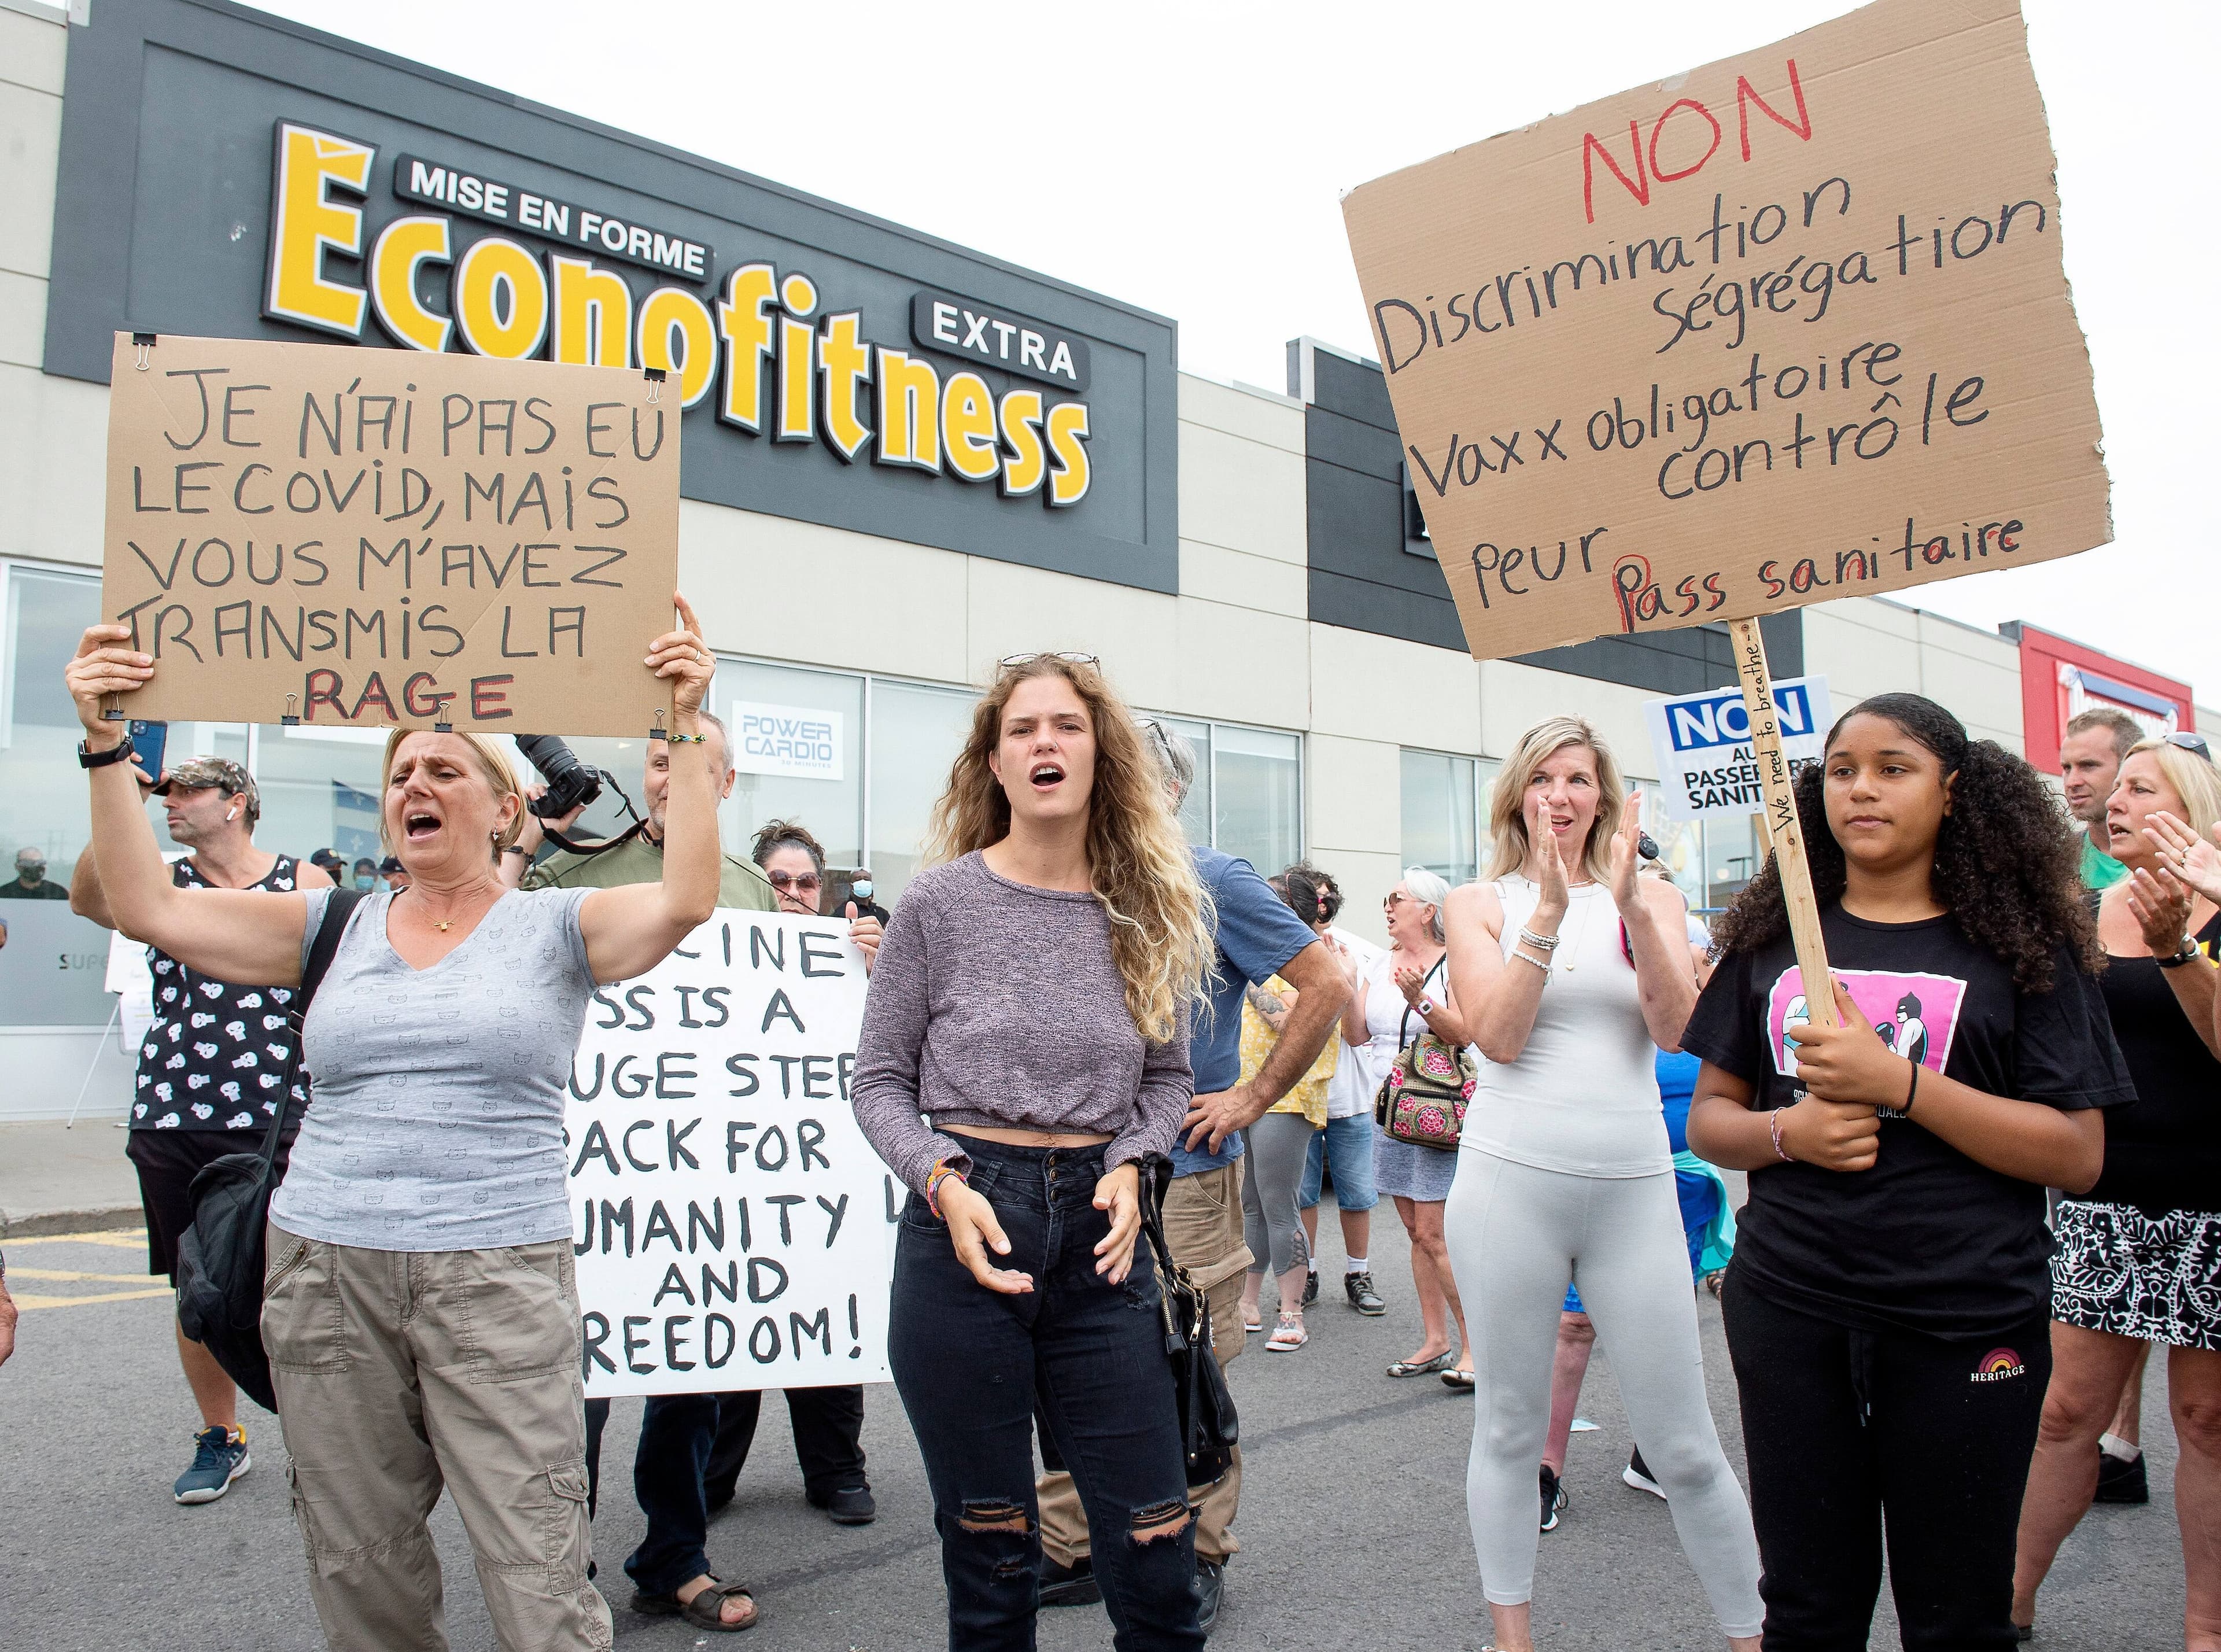 MISE EN FORME
Éconofitness
EXTRA
JE N'AI PAS EU
LE COVID, MAIS
VOUS M'AVEZ
TRANSMIS LA
RAGE
NON
Discrimination
Ségrégation
Vaxx obligatoire
contrôle
peur
Pass sanitaire
We need to breathe-
NON
AU
PASSEP
SANIT
POWER
CARDIO
30 MINUTES
CINE
SS IS A
UGE STEP
ACK FOR
UMANITY
AND
REEDOM!
SUPE
HERITAGE